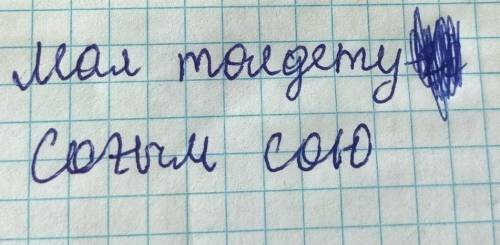 мал толдету
Соғым сою